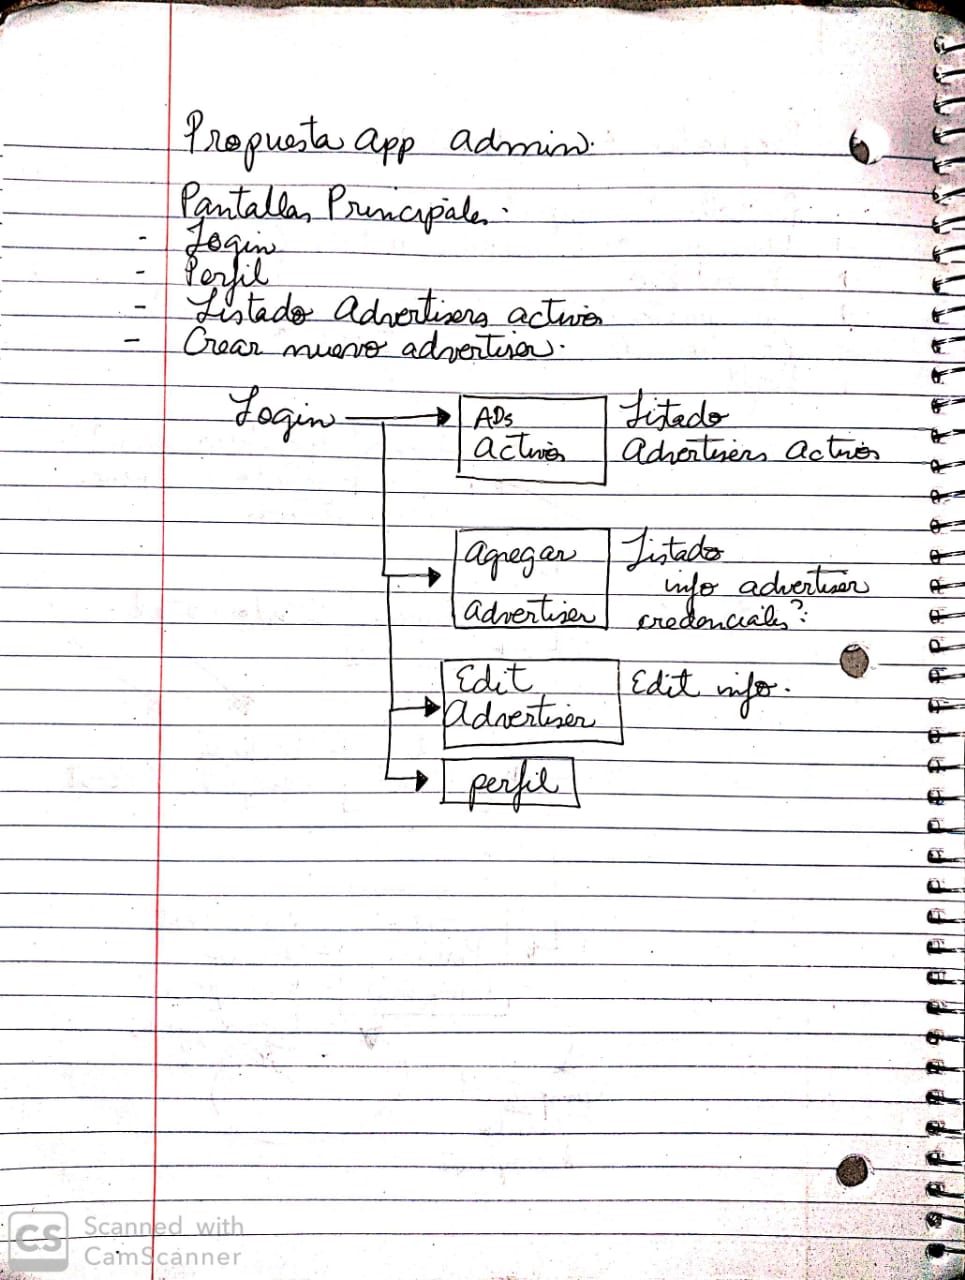 Propuesta app admin.
Pantallas Principales.
- Login
- Perfil
- Listado Advertisers activos
- Crear nuevo advertiser.
Login
ADs
activos
Listado
Advertisers activos
agregar
advertiser
Listado
info advertiser
credenciales?
Edit
advertiser
Edit info.
perfil
CS
Scanned with
CamScanner